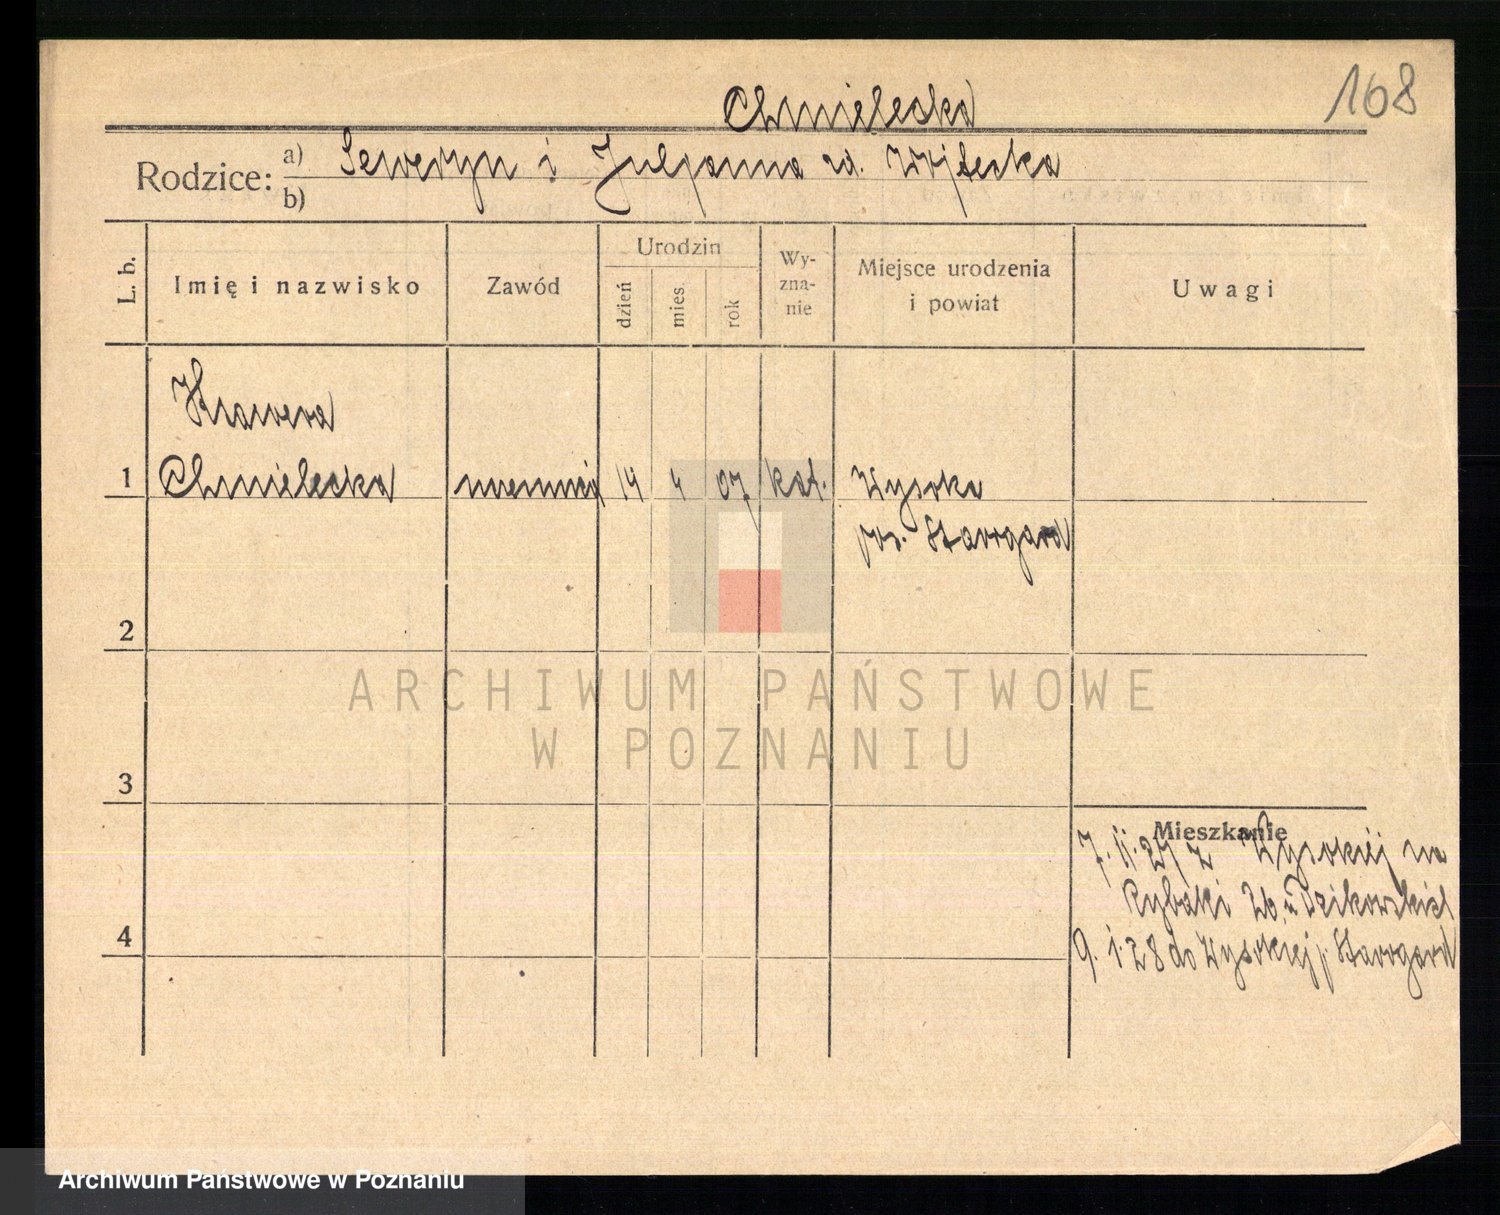 168
Chmielecka
Rodzice: a) Seweryn i Juljanna zd. Wojtecka
b)
L. b.
Imię i nazwisko
Zawód
Urodzin
dzień
mies.
rok
Wy-
zna-
nie
Miejsce urodzenia
i powiat
Uwagi
Ksawera
1 Chmielecka 14 4 07 kat. Wysoka
pow. Starogard
2
ARCHIWUM PAŃSTWOWE
W POZNANIU
3
Mieszkanie
7. 11. 27 z Wysokiej na
Rybaki 20 u Dzikowskich
4
9. 1. 28 do Wysokiej p. Starogard
Archiwum Państwowe w Poznaniu